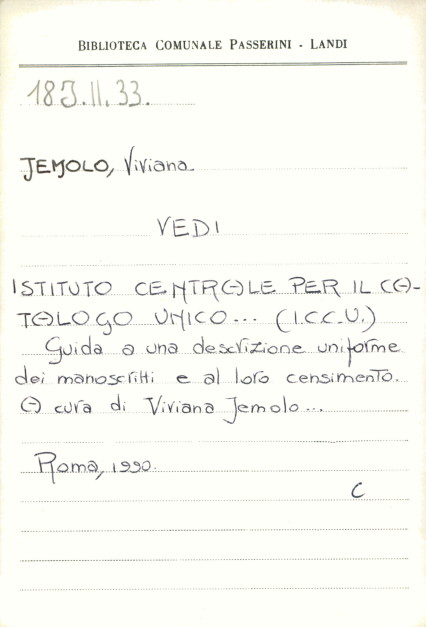 BIBLIOTECA COMUNALE PASSERINI - LANDI
18J.II.33.
JEMOLO, Viviana
VEDI
ISTITUTO CENTRALE PER IL CA-
TALOGO UNICO... (I.C.C.U.)
Guida a una descrizione uniforme
dei manoscritti e al loro censimento.
A cura di Viviana Jemolo...
Roma, 1990.
C